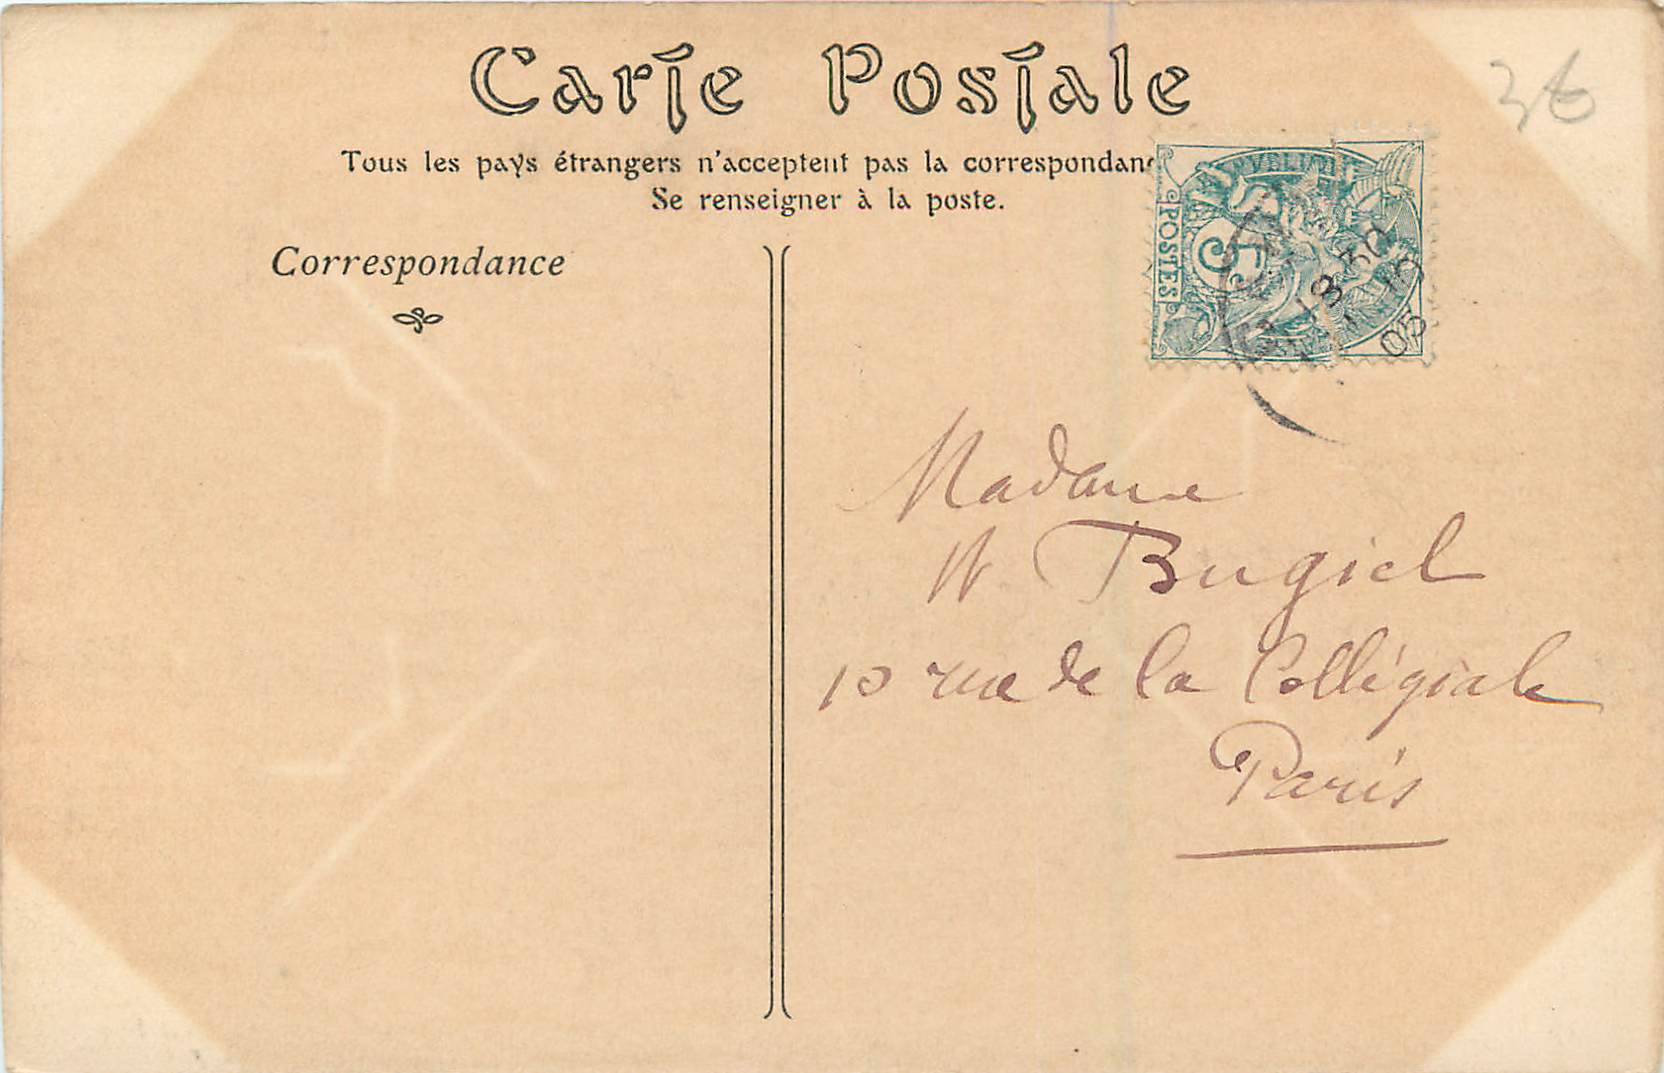 Carte Postale
36
Tous les pays étrangers n'acceptent pas la correspondanc
Se renseigner à la poste.
Correspondance
POSTES
5
8 30
05
Madame
W Bugiel
10 rue de la Collégiale
Paris